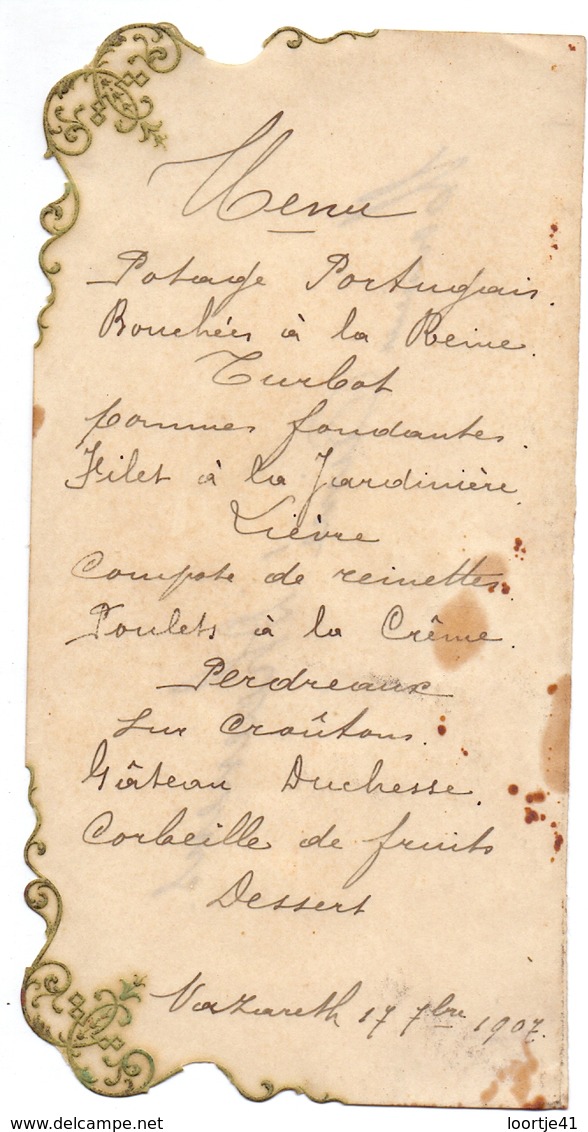 Menu
Potage Portugais.
Bouchées à la Reine.
Turbot
pommes fondantes.
Filet à la Jardinière.
Lièvre
Compote de reinettes
Poulets à la Crême.
Perdreaux
sur Croûtons.
Gâteau Duchesse.
Corbeille de fruits
Dessert
Nazareth 17 7bre 1907.
loortje41